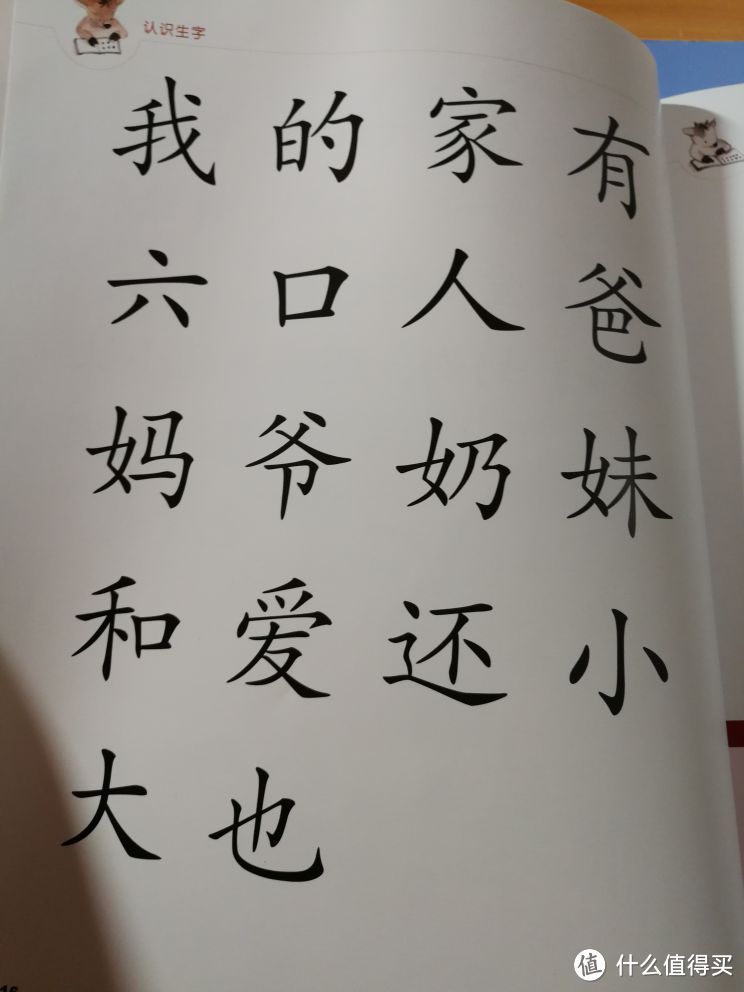 认识生字
我的家有
六口人爸
妈爷奶妹
和爱还小
大也
16
值 什么值得买